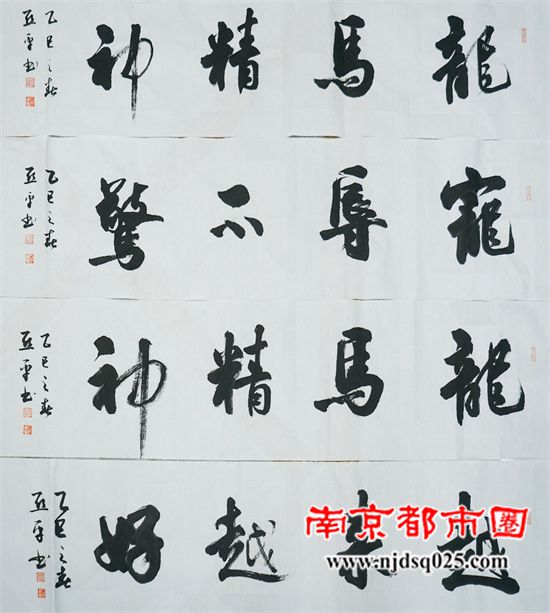 龍馬精神
乙巳之春
亚平书
寵辱不驚
乙巳之春
亚平书
龍馬精神
乙巳之春
亚平书
越来越好
乙巳之春
亚平书
南京都市圈
www.njdsq025.com